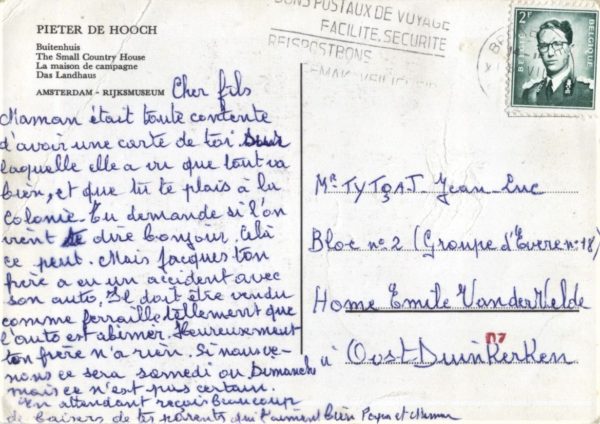 PIETER DE HOOCH
Buitenhuis
The Small Country House
La maison de campagne
Das Landhaus
AMSTERDAM - RIJKSMUSEUM
Cher fils
Maman était toute contente
d'avoir une carte de toi sur
laquelle elle a vu que tout va
bien, et que tu te plais à la
colonie. Tu demande si l'on
vient te dire bonjour. Celà
ce peut. Mais Jacques ton
frère a eu un accident avec
son auto. Il doit être vendu
comme ferraille tellement que
l'auto est abimer. Heureusement
ton frère n'a rien. Si nous ve-
nons ce sera samedi ou Dimanche
mais ce n'est pas certain.
En attendant reçois beaucoup
de baisers de tes parents qui t'aiment bien Papa et Maman
BONS POSTAUX DE VOYAGE
FACILITE, SECURITE
REISPOSTBONS
2F
BELGIE
BELGIQUE
Mr TYTGAT Jean-Luc
Bloc n°2 (Groupe d'Evere n°18)
Home Emile VanderVelde
n7
à OostDuinKerKen